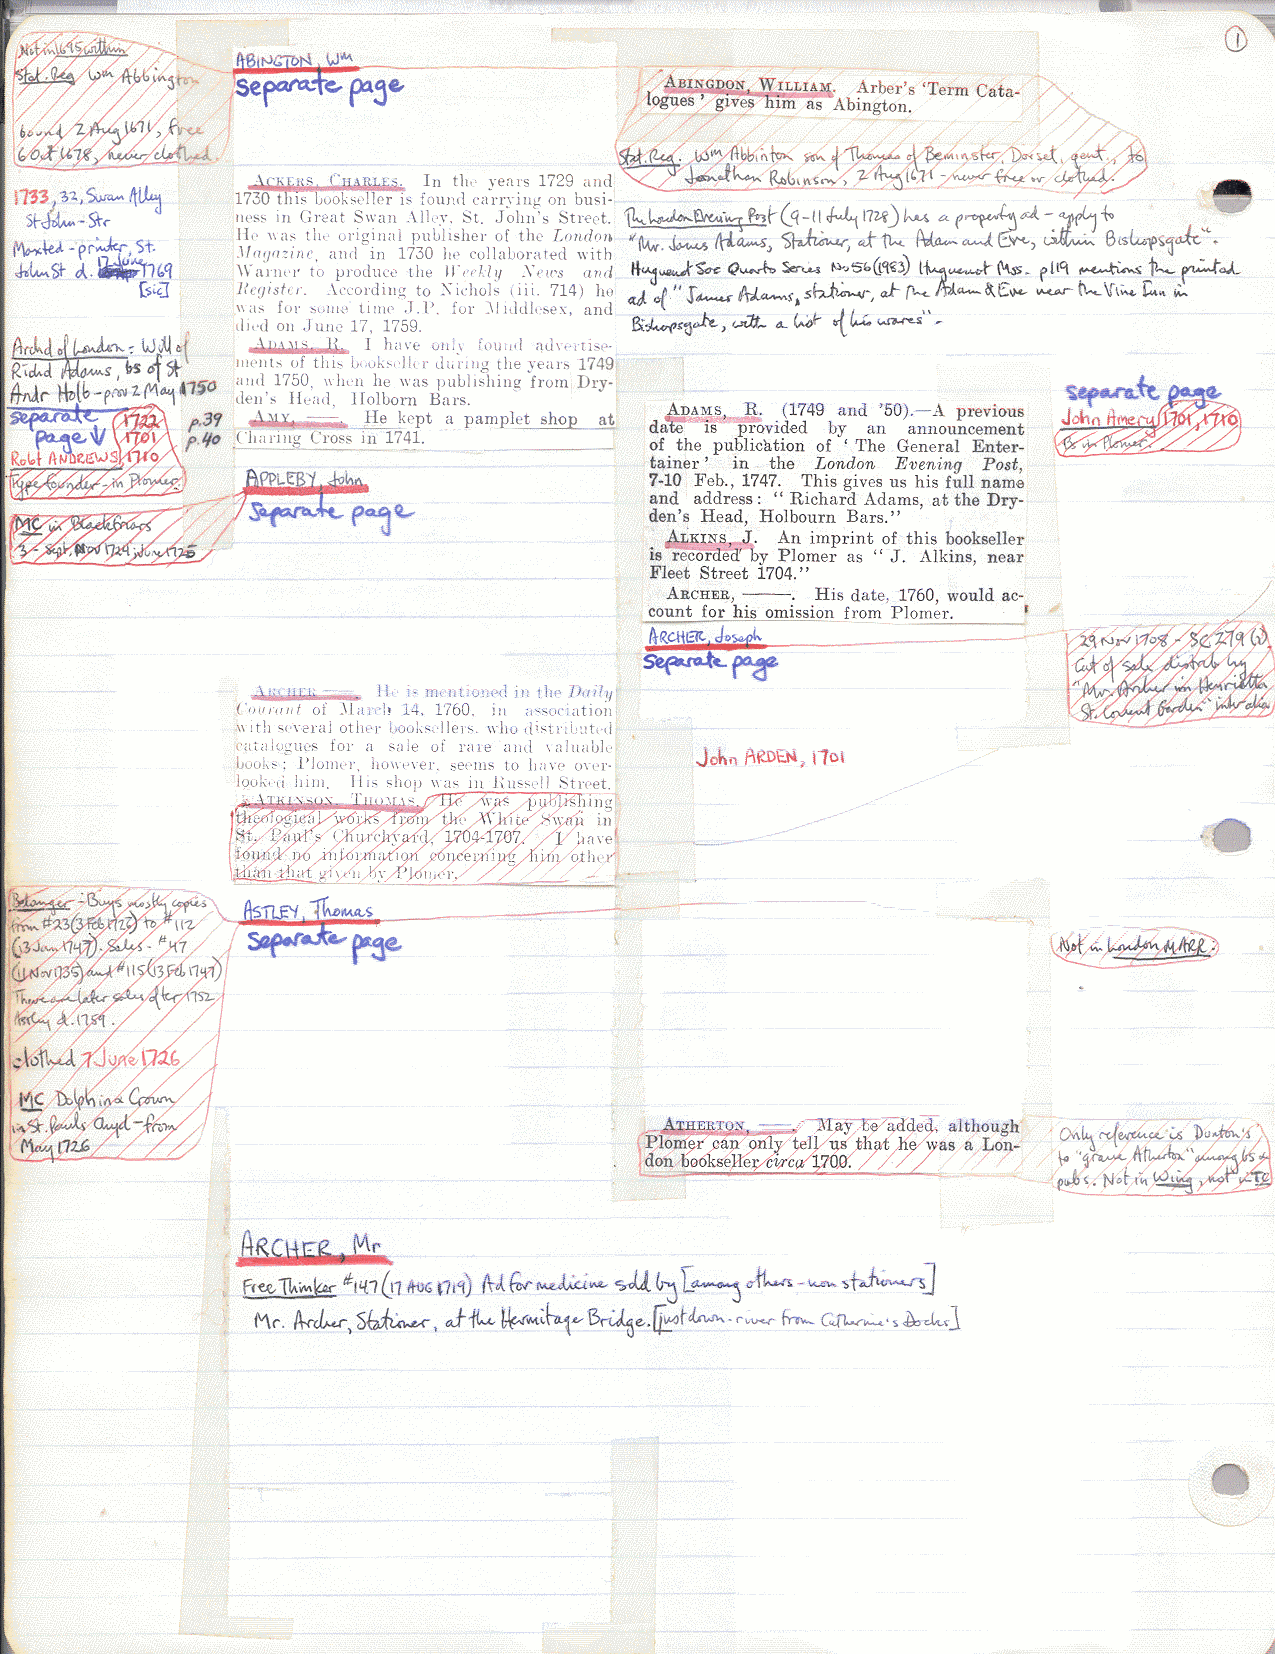 1
Not in 1695 within
Stat. Reg Wm Abbington
bound 2 Aug 1671, free
6 Oct 1678, never clothed.
ABINGTON, Wm
separate page
ABINGDON, WILLIAM. Arber's 'Term Cata-
logues' gives him as Abington.
Stat. Reg. Wm Abbinton son of Thomas of Beminster, Dorset, gent., to
Jonathan Robinson, 2 Aug 1671 - never free or clothed.
1733, 32, Swan Alley
St John - Str
Maxted - printer, St.
John St d. 17 June 1769
[sic]
ACKERS, CHARLES. In the years 1729 and
1730 this bookseller is found carrying on busi-
ness in Great Swan Alley, St. John's Street.
He was the original publisher of the London
Magazine, and in 1730 he collaborated with
Warner to produce the Weekly News and
Register. According to Nichols (iii. 714) he
was for some time J.P. for Middlesex, and
died on June 17, 1759.
The London Evening Post (9-11 July 1728) has a property ad - apply to
"Mr. Jones Adams, Stationer, at the Adam and Eve, within Bishopsgate".
Huguenot Soc Quarto Series No 56 (1983) Huguenot Mss. p119 mentions the printed
ad of "James Adams, stationer, at the Adam & Eve near the Vine Inn in
Bishopsgate, with a list of his wares".
Archd of London: Will of
Richd Adams, bs of St
Andr Holb - prov 2 May 1750
ADAMS, R. I have only found advertise-
ments of this bookseller during the years 1749
and 1750, when he was publishing from Dry-
den's Head, Holborn Bars.
AMY, ——. He kept a pamplet shop at
Charing Cross in 1741.
separate 1722 p.39
page ↓ 1701 p.40
Robt ANDREWS 1710
Type founder - in Plomer.
ADAMS, R. (1749 and '50).—A previous
date is provided by an announcement
of the publication of 'The General Enter-
tainer' in the London Evening Post,
7-10 Feb., 1747. This gives us his full name
and address: "Richard Adams, at the Dry-
den's Head, Holbourn Bars."
ALKINS, J. An imprint of this bookseller
is recorded by Plomer as "J. Alkins, near
Fleet Street 1704."
ARCHER, ——. His date, 1760, would ac-
count for his omission from Plomer.
separate page
John Amery 1701, 1710
Bs in Plomer.
APPLEBY, John
separate page
MC in Blackfriars
3 - Sept, Nov 1724; June 1725
ARCHER, Joseph
separate page
29 Nov 1708 - SC 279 (2)
Cat of sale distrib by
"Mr. Archer in Henrietta
St. Covent Garden" inter alia
ARCHER ——. He is mentioned in the Daily
Courant of March 14, 1760, in association
with several other booksellers, who distributed
catalogues for a sale of rare and valuable
books; Plomer, however, seems to have over-
looked him. His shop was in Russell Street.
John ARDEN, 1701
ATKINSON, THOMAS. He was publishing
theological works from the White Swan in
St. Paul's Churchyard, 1704-1707. I have
found no information concerning him other
than that given by Plomer.
Belanger - Buys mostly copies
from #23 (3 Feb 1726) to #112
(13 Jan 1747). Sales - #47
(11 Nov 1735) and #115 (13 Feb 1747)
There are later sales after 1752
Astley d. 1759.
clothed 7 June 1726
MC Dolphin & Crown
in St. Pauls Chyd - from
May 1726
ASTLEY, Thomas
separate page
Not in London MARR:
ATHERTON, ——. May be added, although
Plomer can only tell us that he was a Lon-
don bookseller circa 1700.
Only reference is Dunton's
to "grave Atherton" among bs &
pubs. Not in Wing, not in TC
ARCHER, Mr
Free Thinker #147 (17 AUG 1719) Ad for medicine sold by [among others - non stationers]
Mr. Archer, Stationer, at the Hermitage Bridge. [just down-river from Catherine's Docks]